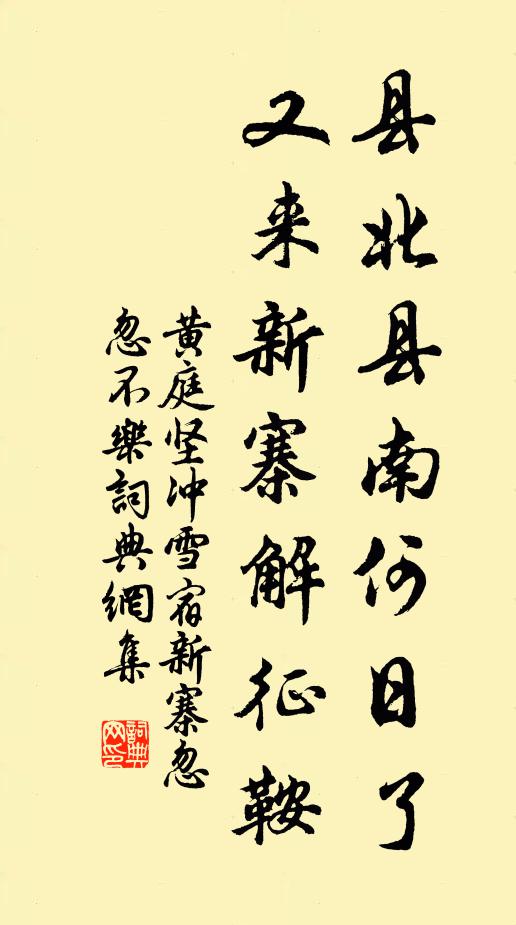 县北县南何日了
又来新寨解征鞍
黄庭坚冲雪宿新寨忽
忽不樂詞典網集
詞典